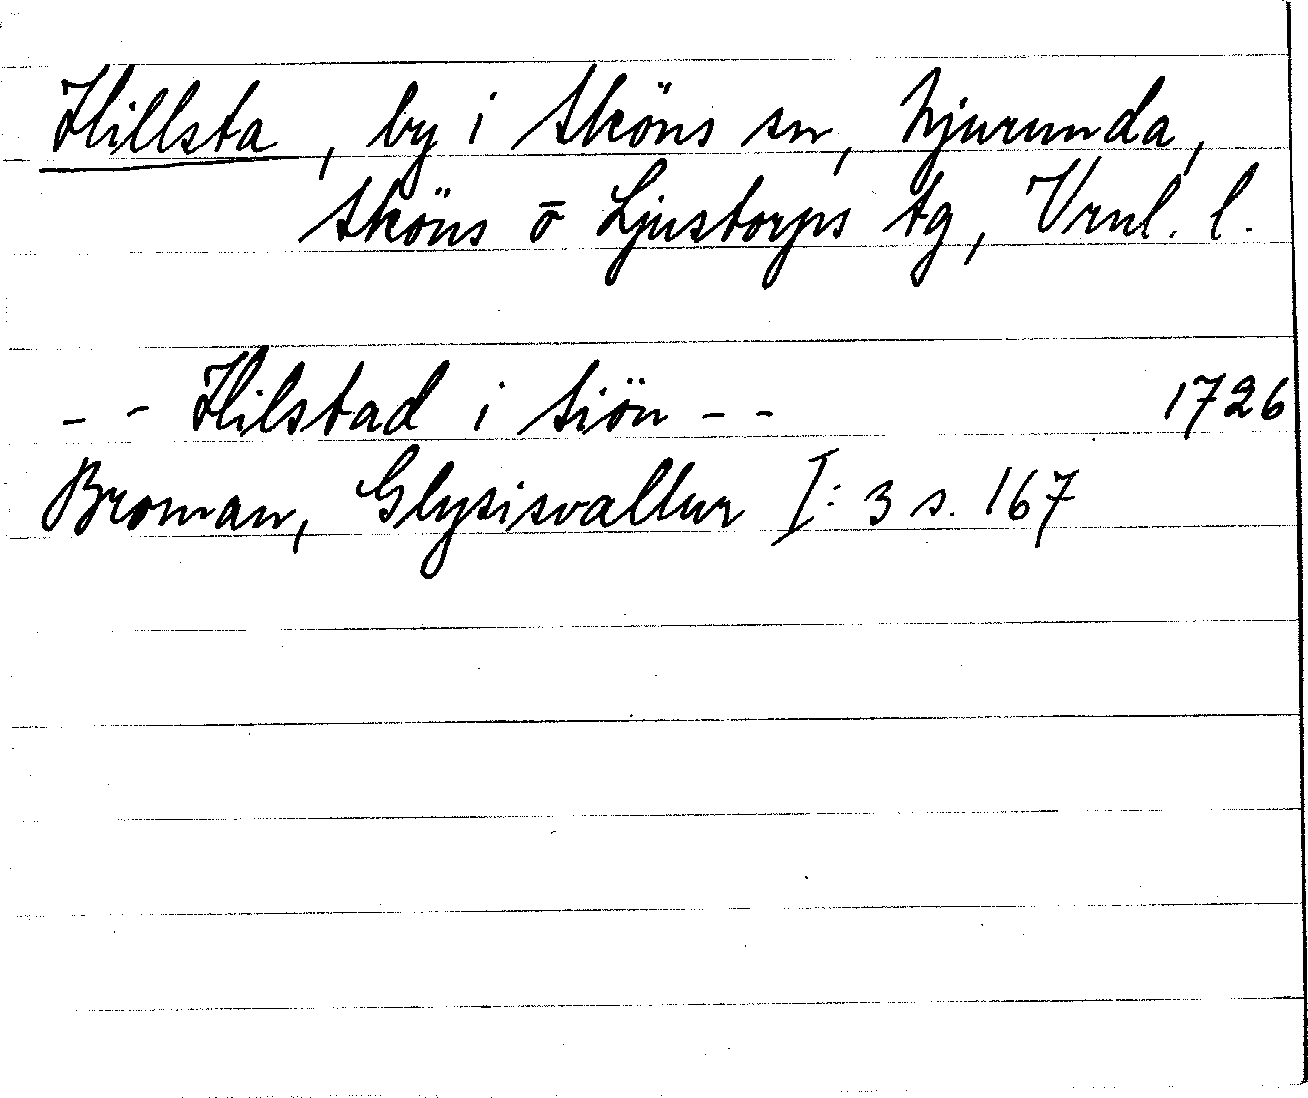 Hillsta, by i Sköns sn, Njurunda,
Sköns o Ljustorps tg, Vrnl. l.
- - Hilstad i Siön - - 1726
Broman, Glysisvallur I: 3 s. 167